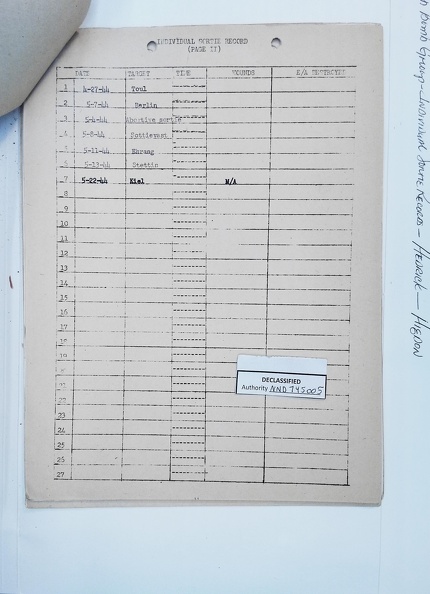 INDIVIDUAL SORTIE RECORD
(PAGE II)
DATE TARGET TIME WOUNDS E/A DESTROYED
1 4-27-44 Toul
2 5-7-44 Berlin
3 5-4-44 Abortive sortie
4 5-8-44
5 5-11-44 Ehrang
6 5-13-44 Stettin
7 5-22-44 Kiel M/A
8
9
10
11
12
13
14
15
16
17
18
19
22
23
24
25
26
27
DECLASSIFIED
Authority NND 745005
Bomb Group-Individual Sortie Records - HENRICK - HIGDON